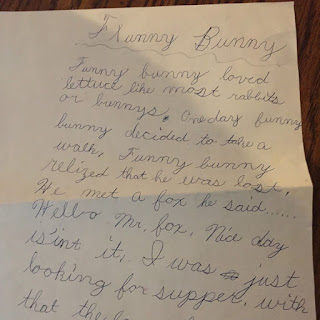 Flunny Bunny
Funny bunny loved
lettuce like most rabbits
or bunnys. One day funny
bunny decided to take a
walk, Funny bunny
relized that he was lost,
He met a fox he said......
Hello Mr. fox, Nice day
is'int it, I was just
looking for supper, with
that the